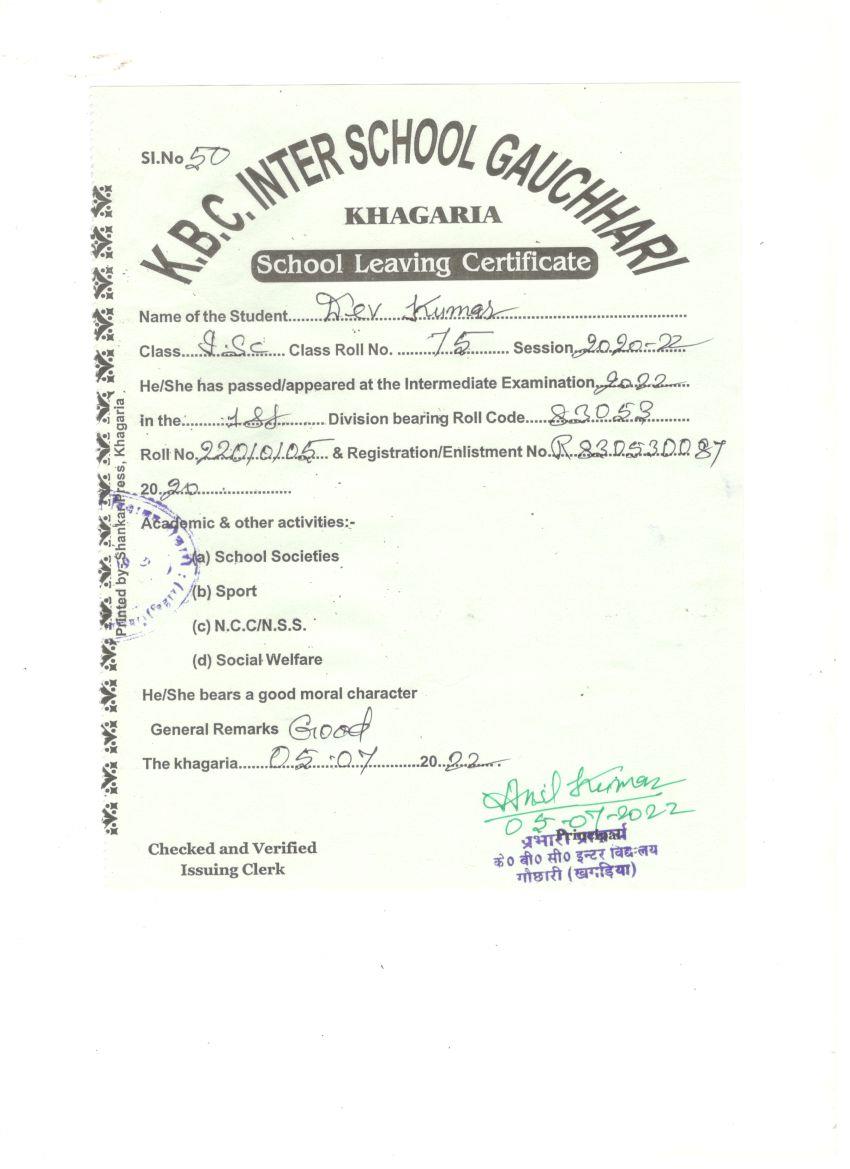 Sl.No 50
K.B.C. INTER SCHOOL GAUCHHARI
KHAGARIA
School Leaving Certificate
Name of the Student......Dev Kumar......
Class....I.Sc.... Class Roll No. .......75....... Session..2020-22
He/She has passed/appeared at the Intermediate Examination..2022....
in the........1st........ Division bearing Roll Code....83053......
Roll No.22010105... & Registration/Enlistment No.R830530087
20.20.....................
Academic & other activities:-
(a) School Societies
(b) Sport
(c) N.C.C/N.S.S.
(d) Social Welfare
He/She bears a good moral character
General Remarks Good
The khagaria......05.07.........20..22...
Anil Kumar
05-07-2022
Principal
Checked and Verified
Issuing Clerk
प्रभारी
के० बी० सी० इन्टर विद्यालय
गौछारी (खगड़िया)
Printed by:-Shankar Press, Khagaria